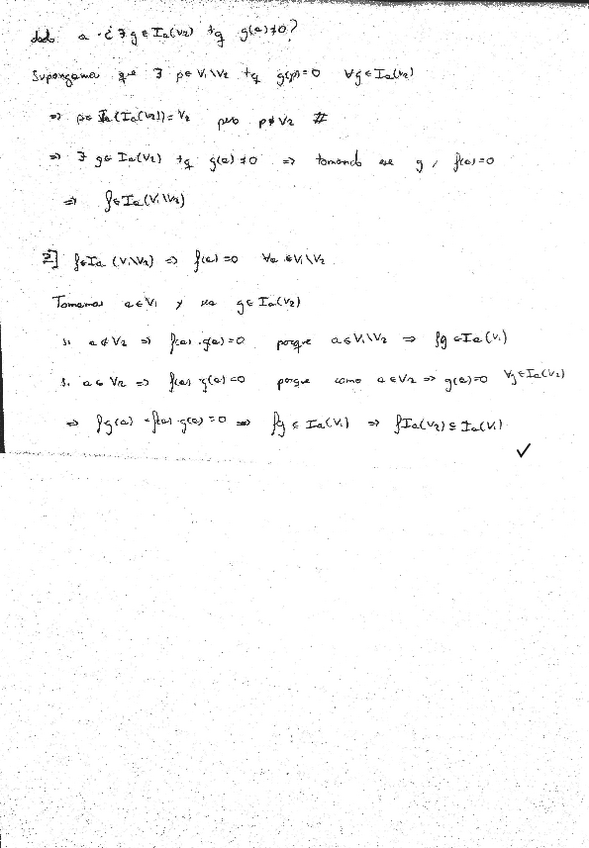 dado a ¿∃ g ∈ Ia(V2) tq g(a)≠0?
Supongamos que ∃ p∈ V1\V2 tq g(p)=0 ∀g ∈ Ia(V2)
⇒ p∈ Va(Ia(V2))=V2 pero p∉V2 #
⇒ ∃ g∈ Ia(V2) tq g(a)≠0 ⇒ tomando ese g, f(a)=0
⇒ f∈Ia(V1\V2)
⊇] f∈Ia (V1\V2) ⇒ f(a)=0 ∀a ∈V1\V2
Tomamos a∈V1 y g∈Ia(V2)
Si a∉V2 ⇒ f(a)·g(a)=0 porque a∈V1\V2 ⇒ fg ∈Ia(V1)
Si a∈V2 ⇒ f(a)·g(a)=0 porque como a∈V2 ⇒ g(a)=0 ∀g∈Ia(V2)
⇒ fg(a) = f(a)·g(a)=0 ⇒ fg ∈ Ia(V1) ⇒ f Ia(V2) ⊆ Ia(V1)
✓